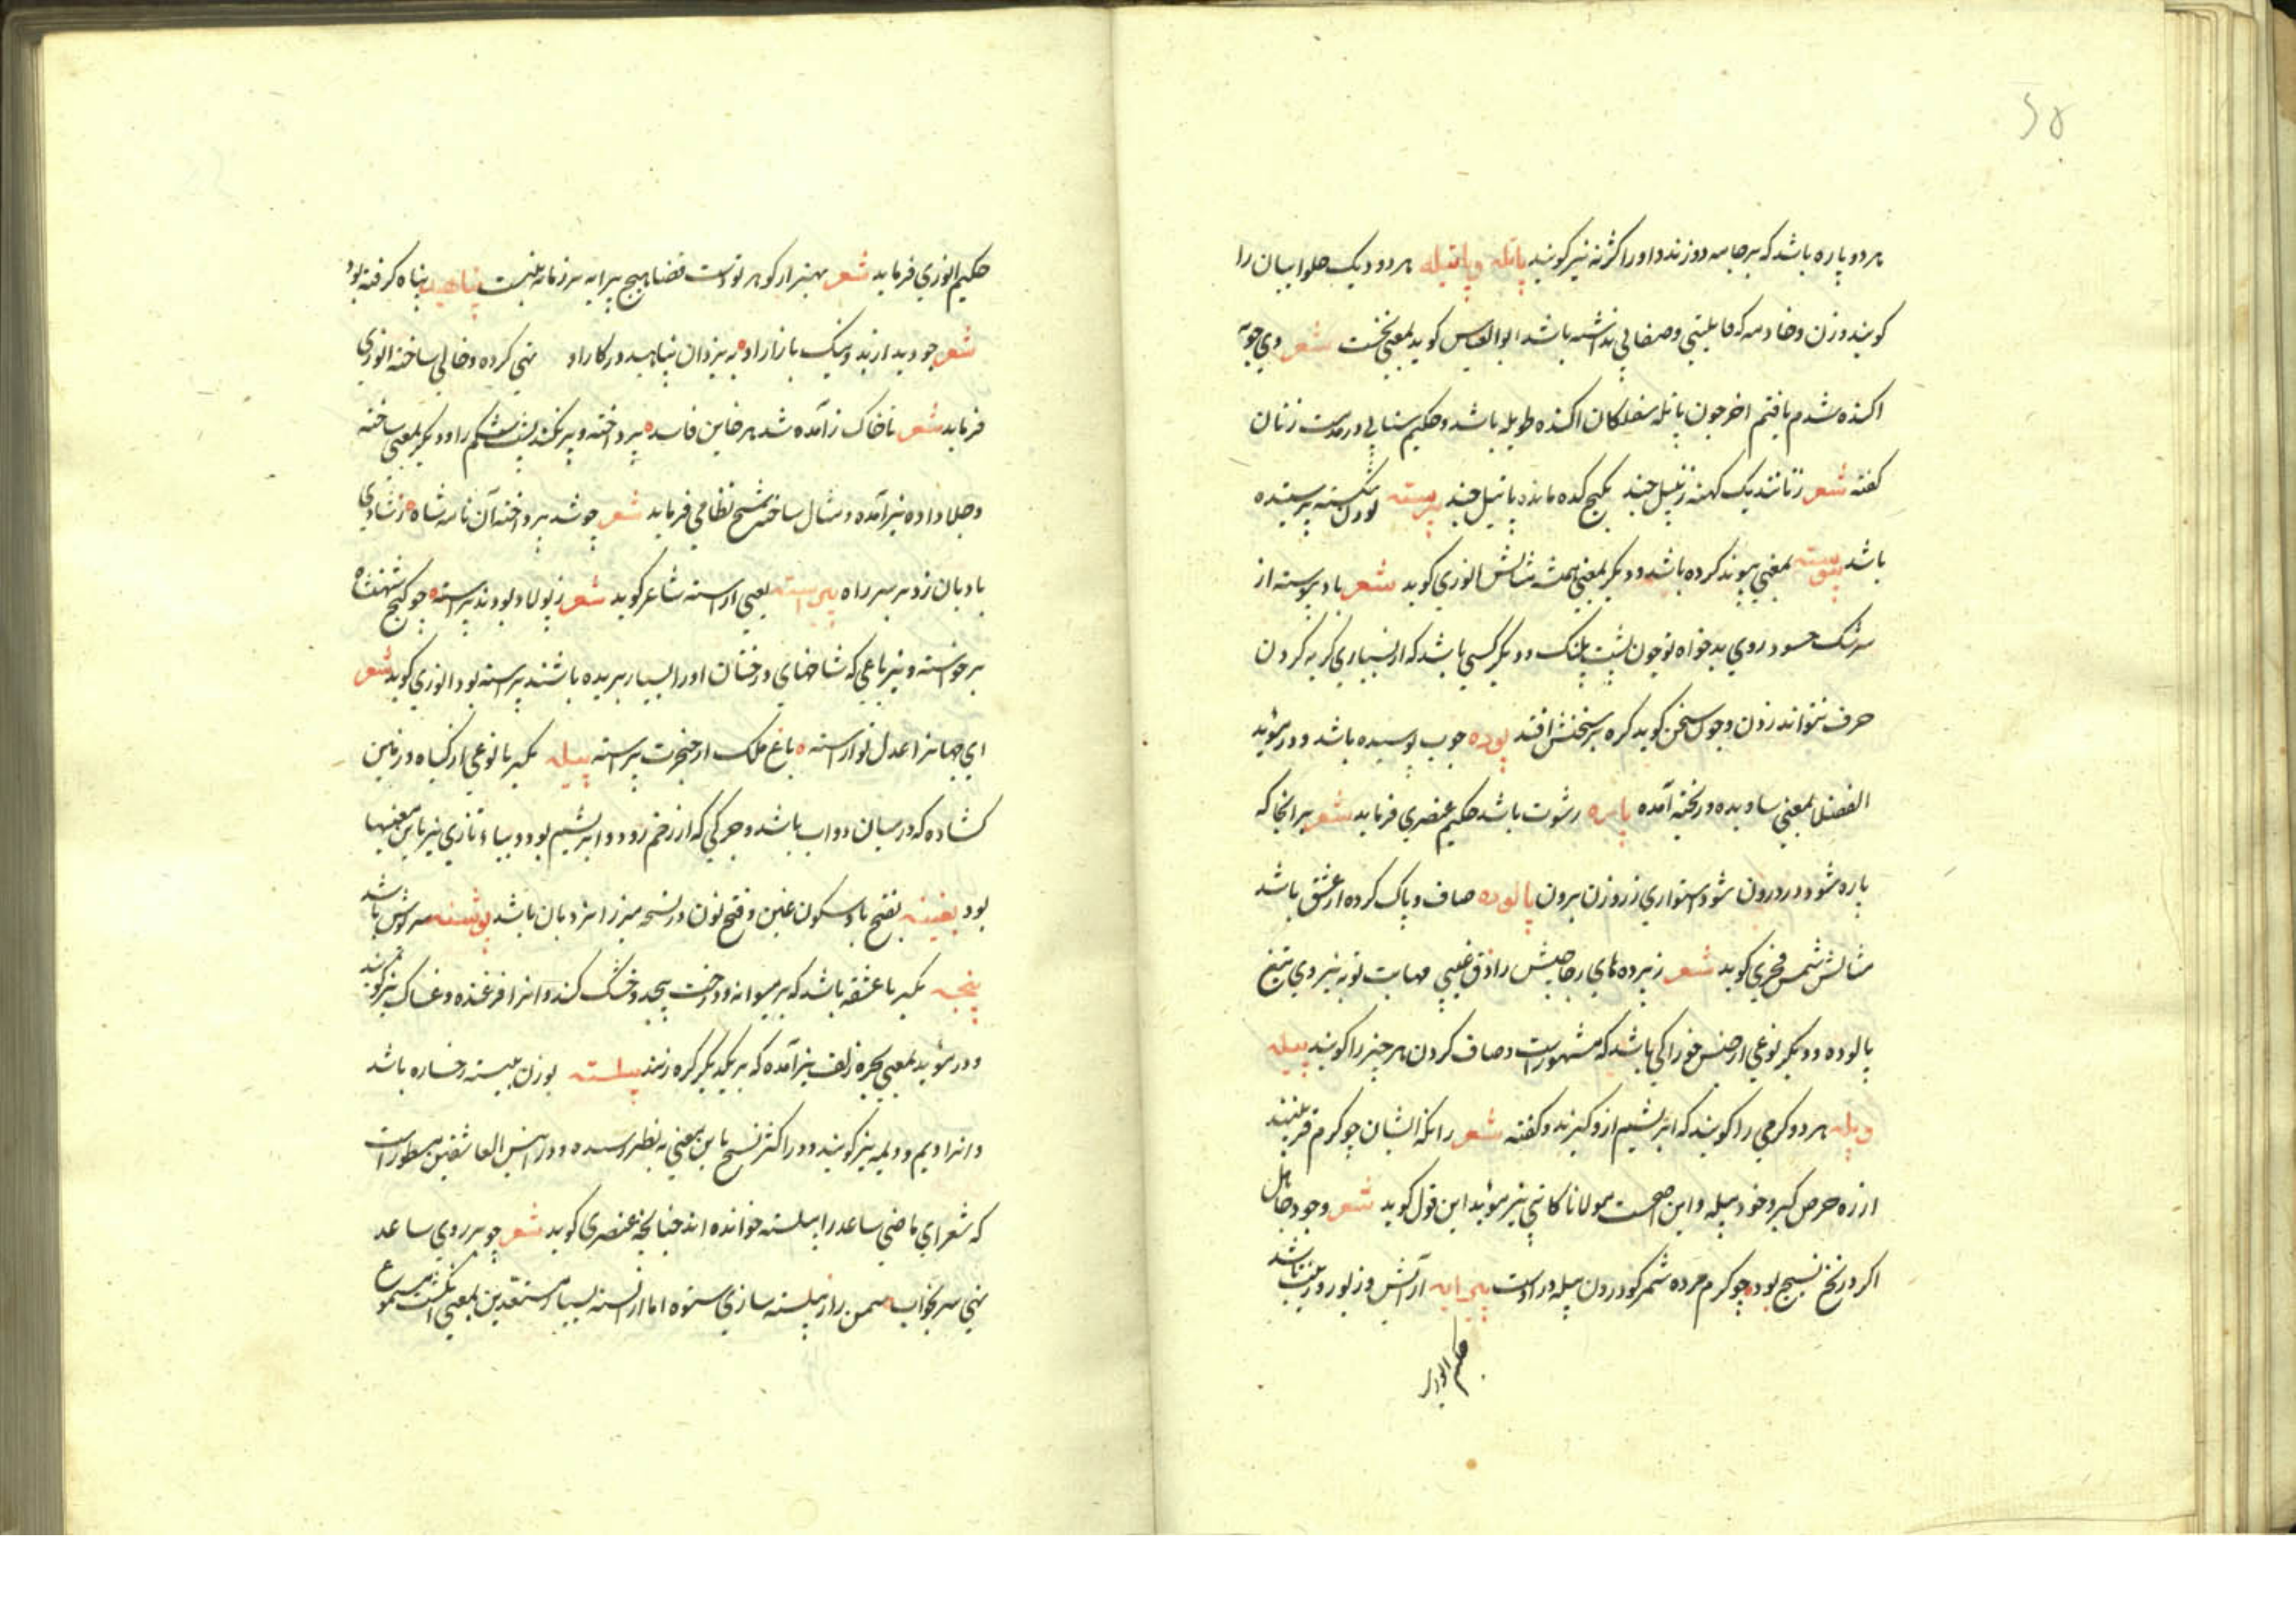 ۵۸
هر دو پاره باشد که بر جامه دوزند و او را کژنه نیز کویند پاتله و پاتیله هر دو دیک حلوا بیان را
کویند و زن و خادمه که قابلیتی و صفایی نداشته باشد ابوالعباس کوید بمعنی نخست شعر وی جوبه
اکنده شدم یافتم اخر چون پاتله سفلکان اکنده طویله باشد و حکیم سنایی در مذمت زنان
کفته شعر زنانند یک کهنه زنبیل چند بکیج کده مانده پاتیل چند پرسته
باشد پیوسته بمعنی پیوند کرده باشد و دیکر بمعنی همیشه مثالش انوری کوید شعر باد پیوسته از
سرشک حسود روی بدخواه تو چون پشت پلنک و دیکر کسی باشد که از بسیاری کریه کردن
حرف نتواند زدن و چون سخن کوید کره بر سخنش افتد پوده چوب پوسیده باشد و در مؤید
الفضلا بمعنی ساویده و ریخته آمده پاره رشوت باشد حکیم عنصری فرماید شعر هر انجا که
پاره شود در درون شود استواری ز روزن برون پالوده صاف و پاک کرده از غش باشد
مثالش شمس فخری کوید شعر ز پرده های رجا جیش راذق غیبی مهابت تو به نیروی تیغ
پالوده و دیکر نوعی از جنس خوراکی باشد که مشهور است و صاف کردن هر چیز را کویند پیله
و پله هر دو کرمی را کویند که ابریشم از و کیرند و کفته شعر زانکه ایشان چو کرم قز بتنند
از ره حرص کیر و خود پیله و این اصح است مولانا کاتبی نیز مؤید این قول کوید شعر وجود جاهل
اکر در نخ نسیج بود چو کرم مرده شمر کو درون پیله در است پیرایه آرایش و زیور و زینت باشد
حکیم انوری
حکیم انوری فرماید شعر بهتر از کوهر تو دست قضا هیچ پیرایه بر زمانه نبست پناهید پناه کرفته بود
شعر چو دید ارند و نیک بازار او به یزدان پناهید در کار او تهی کرده و خالی ساخته انوری
فرماید شعر تا خاک ز آمد شد هر خاین فاسد پرداخته و پر نکند پشت و شکم را و دیکر بمعنی ساخته
و جلا داده نیز آمده و مثال ساخته شیخ نظامی فرماید شعر چو شد پرداخته آن نامه شاه ز شادی
بادبان زد بر سر راه پیراسته یعنی اراسته شاعر کوید شعر ز پولاد بودند پیراسته چو کنج شهنشاه
بر خواسته و نیز باغی که شاخهای درختان او را بسیار بریده باشند پیراسته بود انوری کوید شعر
ای جهانرا عدل تو اراسته باغ ملک از خنجرت پیراسته پیله بکسر با نوعی از کیاه و زمین
کشاده که در میان دو اب باشد و چرکی که از زخم رود و ابریشم بود و بیاء تازی نیز باین معنیها
بود پغینه بفتح با و سکون غین و فتح نون در نسخه میرزا نردبان باشد پوشنه سرپوش باشد
پیچه بکسر با عشقه باشد که بر میوانه و درخت پیچد و خشک کند و انرا فرغنده و غساک نیز کویند
و در مؤید بمعنی بچره زلف نیز آمده که بر یکدیکر کره زنند پیلسته بوزن بیسته رخساره باشد
و انرا دیم و دیمه نیز کویند و در اکثر نسخ باین معنی به نظر رسیده و در انیس العاشقین مسطور است
که شعرای ماضی ساعد را پیلسته خوانده اند چنانچه عنصری کوید شعر چو بر روی ساعد
نهی سر بخواب سمن را ز پیلسته سازی ستون اما از این بسیار مستقدین بمعنی انکشت